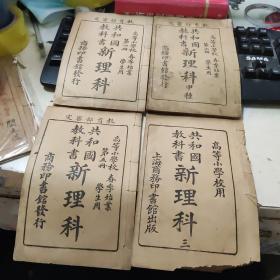 教育部審定
高等小學校 春季始業
第四冊 學生用
共和國
教科書 新理科
商務印書館發行
教育部審定
高等小學校 春季始業
學生用
共和國
教科書 新理科
甲種
商務印書館發行
教育部審定
高等小學校 春季始業
第五冊 學生用
共和國
教科書 新理科
商務印書館發行
高等小學校用
共和國
教科書 新理科 三
上海商務印書館出版